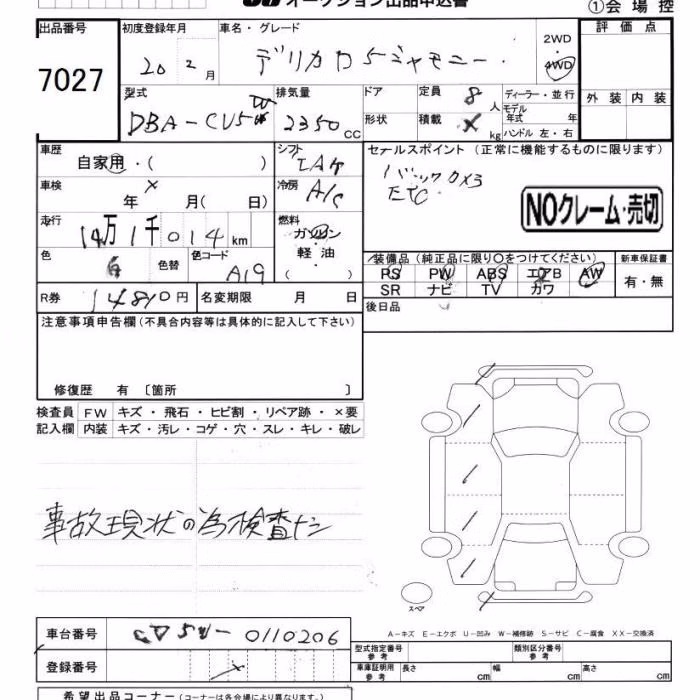 オークション出品申込書
①会場控
出品番号 初度登録年月 車名・グレード 評価点
7027 20 2月 デリカD5ジャモニー 2WD 4WD
型式 排気量 ドア 定員 8人 ディーラー・並行 外装 内装
DBA-CV5W 2350cc 形状 積載 ×kg モデル年式 年 ハンドル 左・右
車歴 自家用・( ) シフト IAT セールスポイント (正常に機能するものに限ります)
バックOX3
ETC
車検 × 年 月( 日) 冷房 A/C
NOクレーム・売切
走行 14万1千014km 燃料 ガソリン・軽油 ( )
装備品 (純正品に限り〇をつけてください) 新車保証書
色 色替 色コード A19
PS PW ABS エアB AW 有・無
SR ナビ TV カワ
R券 14810円 名変期限 月 日 後日品
注意事項申告欄 (不具合内容等は具体的に記入して下さい)
修復歴 有 〔箇所 〕
検査員 FW キズ・飛石・ヒビ割・リペア跡・×要
記入欄 内装 キズ・汚レ・コゲ・穴・スレ・キレ・破レ
事故現状の為検査ナシ
スペア
A-キズ E-エクボ U-凹み W-補修跡 S-サビ C-腐食 XX-交換済
車台番号 CV5W-0110206 型式指定番号 参考 類別区分番号 参考
登録番号 × 車庫証明用 参考 長さ cm 幅 cm 高さ cm
希望出品コーナー (コーナーは各会場により異なります。)